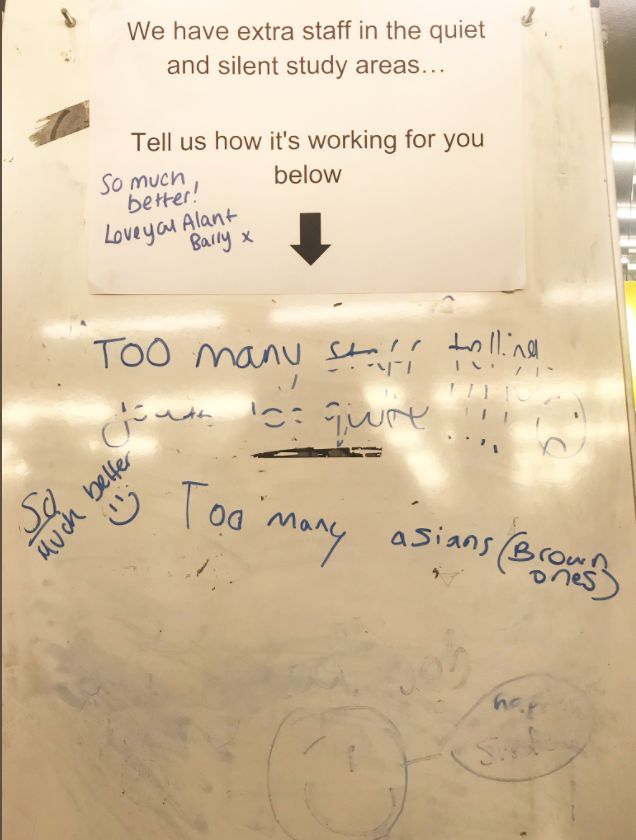 We have extra staff in the quiet
and silent study areas...
Tell us how it's working for you
below
So much
better!
Love you Alant
Barry x
TOO many staff telling
quiet
So
much better
Too many asians (Brown
ones)